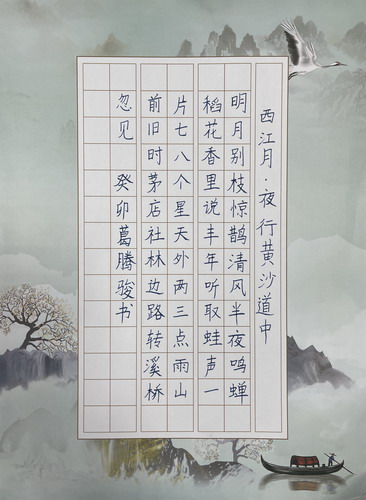 西江月·夜行黄沙道中
明月别枝惊鹊清风半夜鸣蝉
稻花香里说丰年听取蛙声一
片七八个星天外两三点雨山
前旧时茅店社林边路转溪桥
忽见 癸卯葛腾骏书